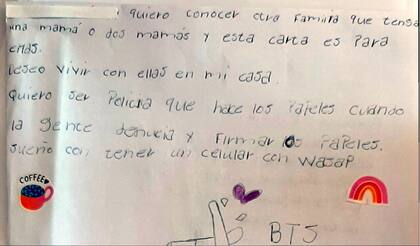 quiero conocer otra Familia que tenga
una mamá o dos mamás y esta carta es Para
ellas.
Deseo vivir con ellas en mi casa.
Quiero ser Policia que hace los Papeles cuando
la gente denucia y Firmar los Papeles.
Sueño con tener un celular con Wasap
COFFEE
BTS